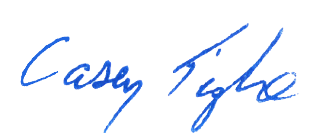 Casey Tighe